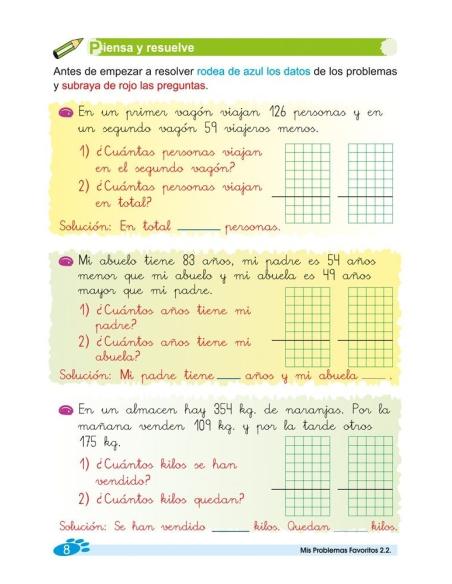 Piensa y resuelve
Antes de empezar a resolver rodea de azul los datos de los problemas
y subraya de rojo las preguntas.
En un primer vagón viajan 126 personas y en
un segundo vagón 59 viajeros menos.
1) ¿Cuántas personas viajan
en el segundo vagón?
2) ¿Cuántas personas viajan
en total?
Solución: En total ______ personas.
Mi abuelo tiene 83 años, mi padre es 54 años
menor que mi abuelo y mi abuela es 49 años
mayor que mi padre.
1) ¿Cuántos años tiene mi
padre?
2) ¿Cuántos años tiene mi
abuela?
Solución: Mi padre tiene ____ años y mi abuela ____.
En un almacen hay 354 kg. de naranjas. Por la
mañana venden 109 kg. y por la tarde otros
175 kg.
1) ¿Cuántos kilos se han
vendido?
2) ¿Cuántos kilos quedan?
Solución: Se han vendido _____ kilos. Quedan _____ kilos.
8
Mis Problemas Favoritos 2.2.